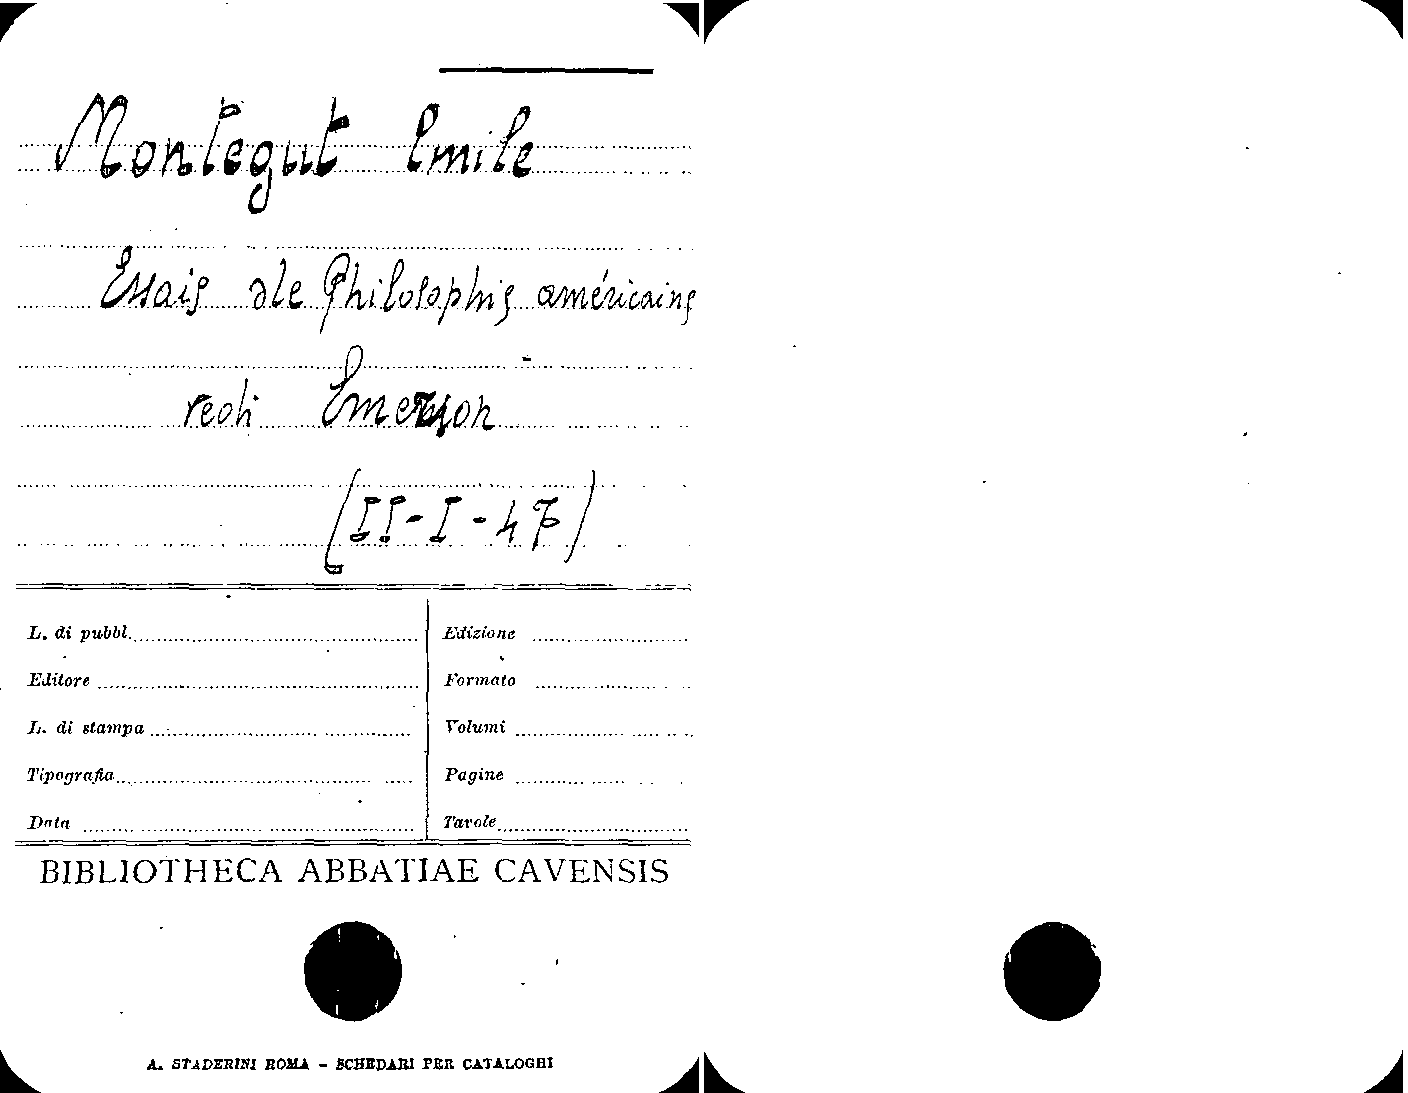 Montegut Emile
Essais de Philosophis américains
vedi Emerson
(II-I-47)
L. di pubbl.
Edizione
Editore
Formato
L. di stampa
Volumi
Tipografia
Pagine
Data
Tavole
BIBLIOTHECA ABBATIAE CAVENSIS
A. STADERINI ROMA - SCHEDARI PER CATALOGHI